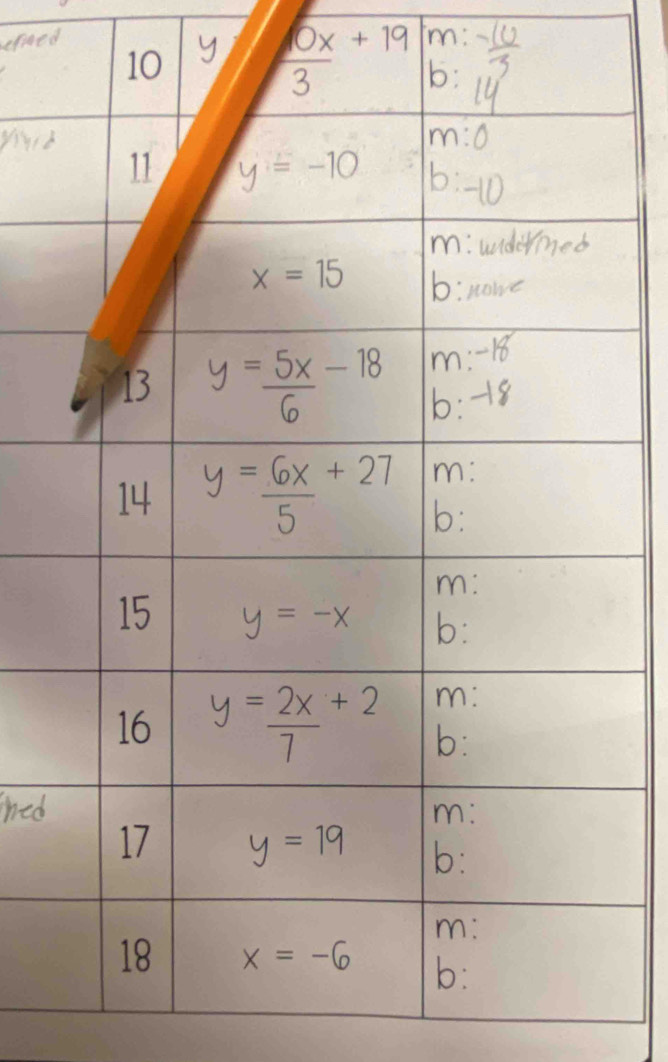 10 y 10x + 19 m: -10
3 3
b: 14
11 y = -10 m: 0
b: -10
x = 15 m: undefined
b: none
13 y = 5x - 18 m: -18
6 b: -18
14 y = 6x + 27 m:
5 b:
15 y = -x m:
b:
16 y = 2x + 2 m:
7 b:
17 y = 19 m:
b:
18 x = -6 m:
b: